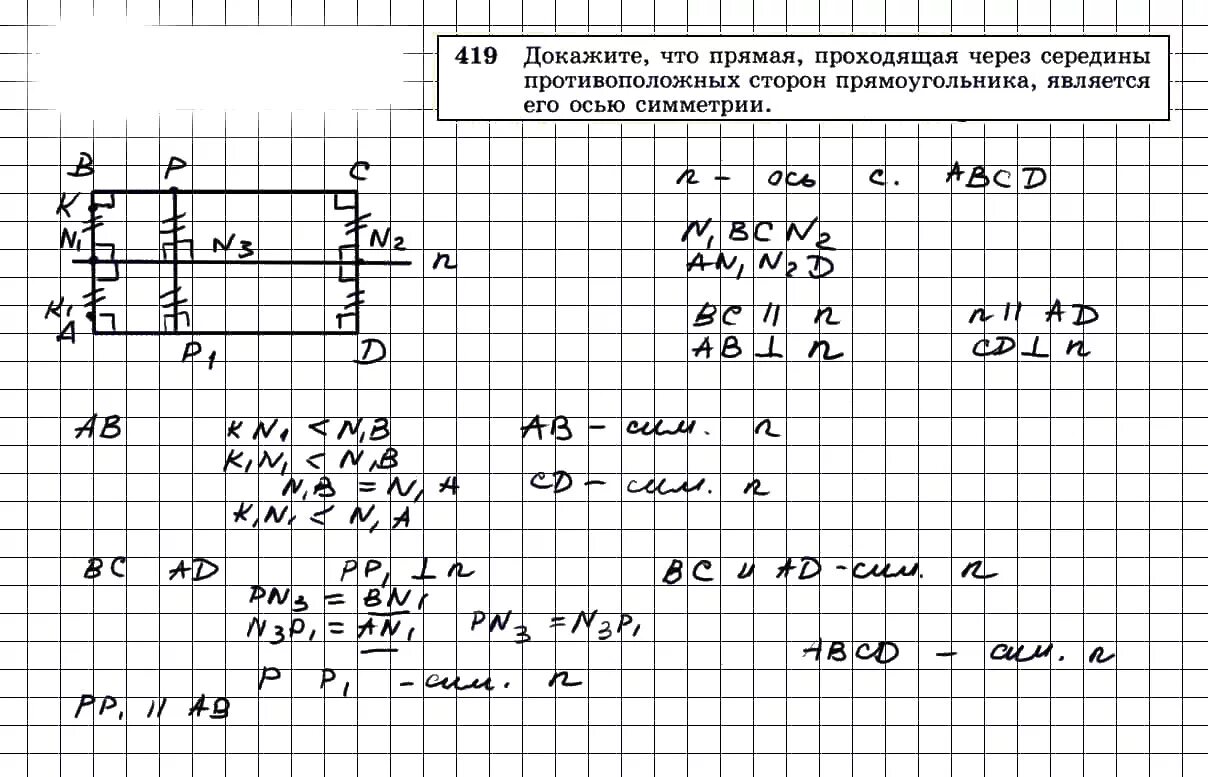 419 Докажите, что прямая, проходящая через середины
противоположных сторон прямоугольника, является
его осью симметрии.
B P C
K
N₁ N₃ N₂ n
K₁
A P₁ D
n - ось с. ABCD
N₁BCN₂
AN₁N₂D
BC || n n || AD
AB ⊥ n CD ⊥ n
AB KN₁ < N₁B AB - сим. n
K₁N₁ < N₁B
N₁B = N₁A CD - сим. n
K₁N₁ < N₁A
BC AD PP₁ ⊥ n BC и AD - сим. n
PN₃ = BN₁
N₃P₁ = AN₁ PN₃ = N₃P₁
ABCD - сим. n
P P₁ - сим. n
PP₁ || AB